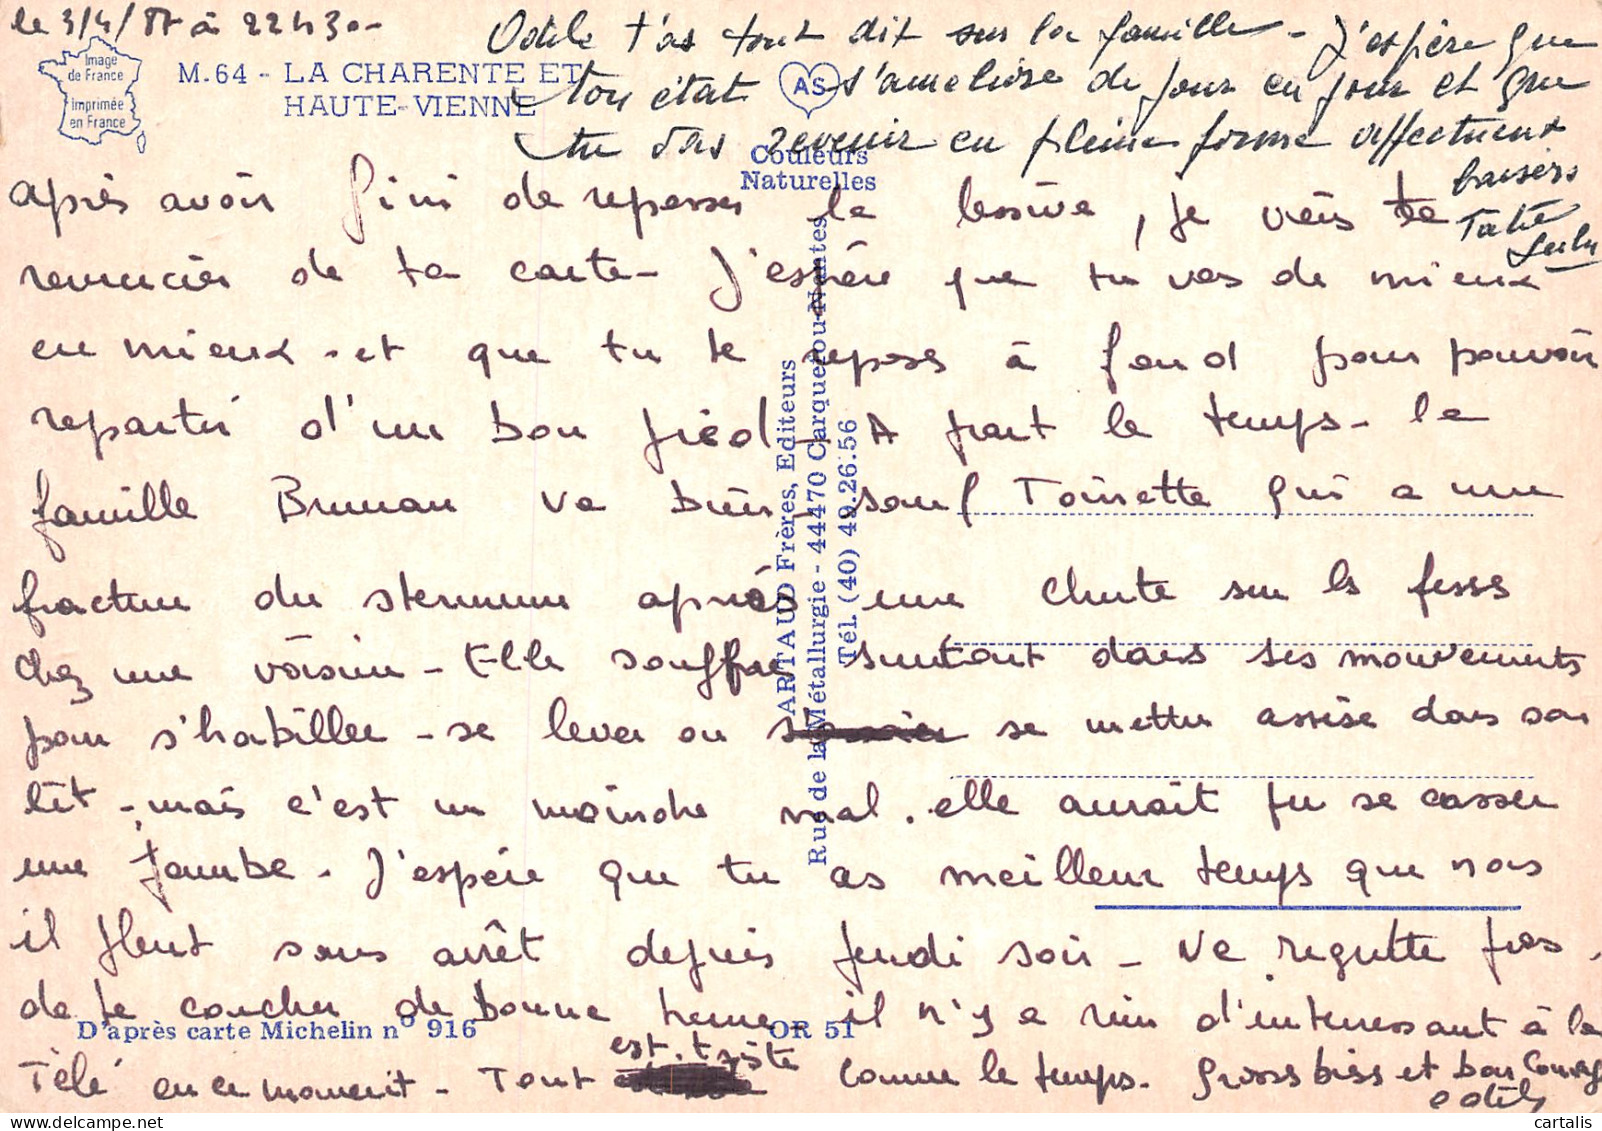 le 3/4/87 à 22H30-
Odile t'as tout dit sur la famille - J'espère que
ton état s'améliore de jour en jour et que
tu vas revenir en pleine forme affectueux
baisers
Tatie
Lulu
Image
de France
imprimée
en France
M.64 - LA CHARENTE ET
HAUTE-VIENNE
AS
Couleurs
Naturelles
après avoir fini de repasser la lessive, je viens te
remercier de ta carte - J'espère que tu vas de mieux
en mieux - et que tu te reposes à fond pour pouvoir
repartir d'un bon pied - A part le temps - la
famille Brunan va bien - sauf Toinette qui a une
fracture du sternum après une chute sur les fesses
chez une voisine - Elle souffre surtout dans ses mouvements
pour s'habiller - se lever ou se mettre assise dans son
lit - mais c'est un moindre mal. elle aurait pu se casser
une jambe - J'espère que tu as meilleur temps que nous
il pleut sans arrêt depuis jeudi soir - Ne regrette pas
de te coucher de bonne heure - il n'y a rien d'intéressant à la
Télé en ce moment - Tout est triste comme le temps - Grosses bises et bon courage
Odile
ARTAUD Frères, Editeurs
Rue de la Métallurgie - 44470 Carquefou-Nantes
Tél. (40) 49.26.56
D'après carte Michelin n° 916
OR 51
cartalis